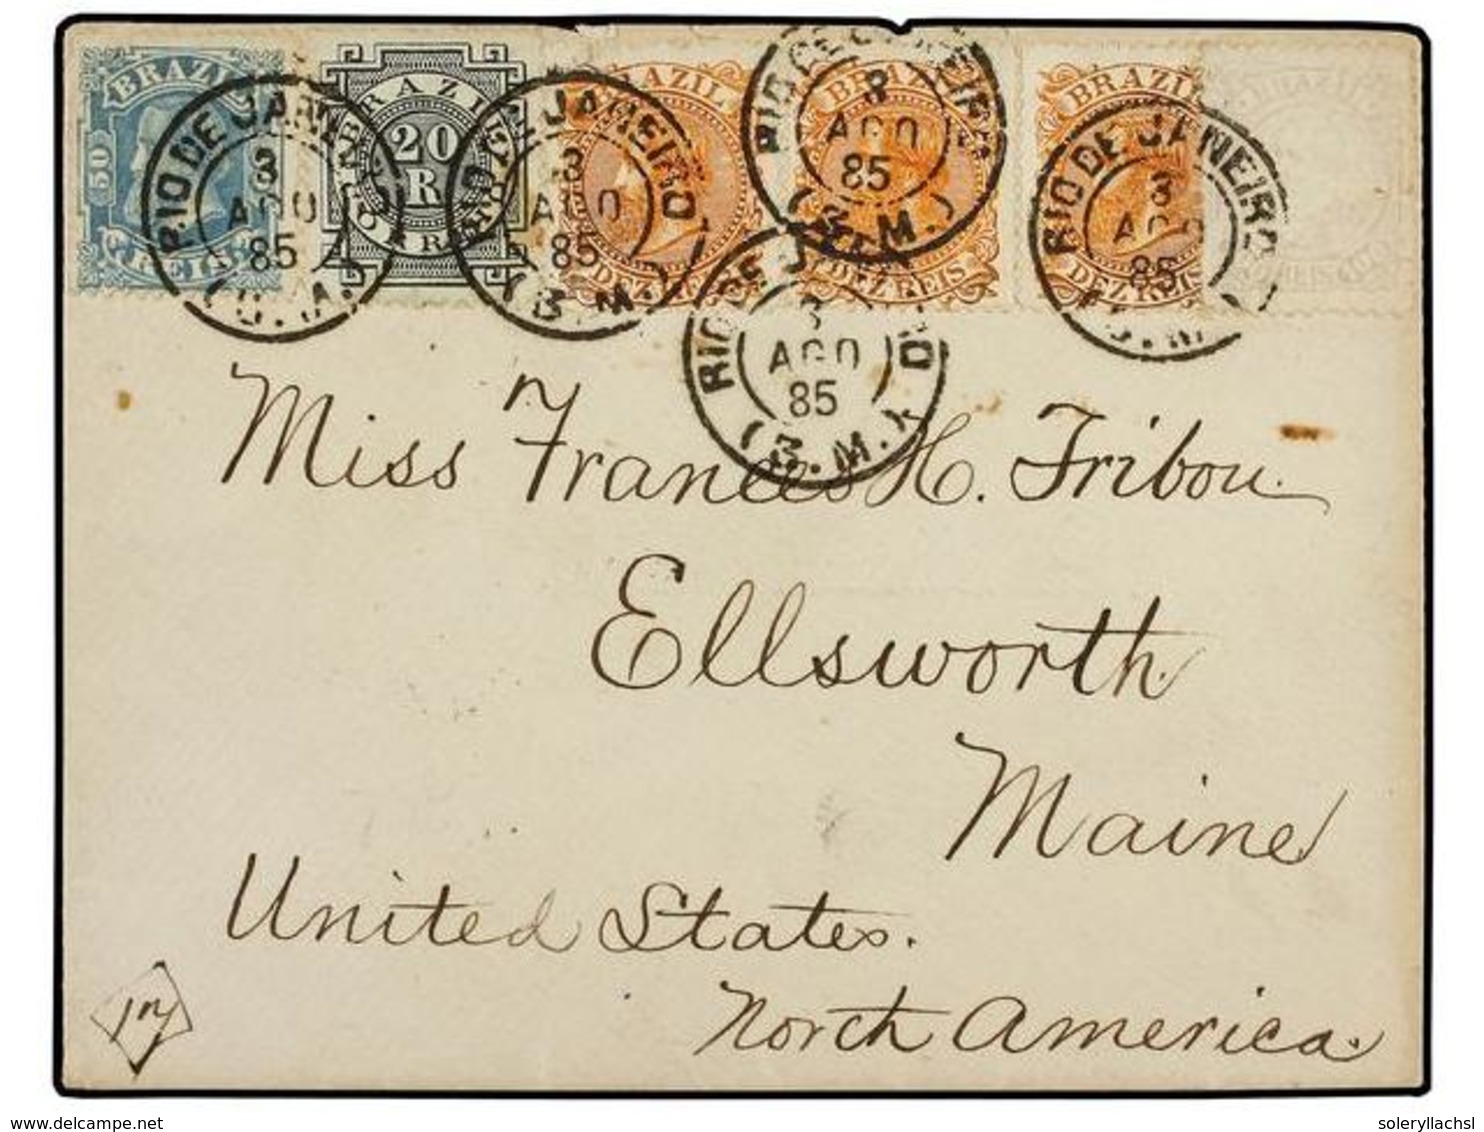 BRAZIL 50 REIS
BRAZIL 20 R
BRAZIL DEZ REIS
BRAZIL DEZ REIS
BRAZIL DEZ REIS
RIO DE JANEIRO 3 AGO 85
RIO DE JANEIRO 3 AGO 85 (3.M.)
RIO DE JANEIRO 3 AGO 85 (3.M.)
RIO DE JANEIRO 3 AGO 85
RIO DE J 3 AGO 85 (3.M.)
Miss Frances H. Tribou
Ellsworth
Maine
United States.
North America.
delcampe.net
soleryllachsl